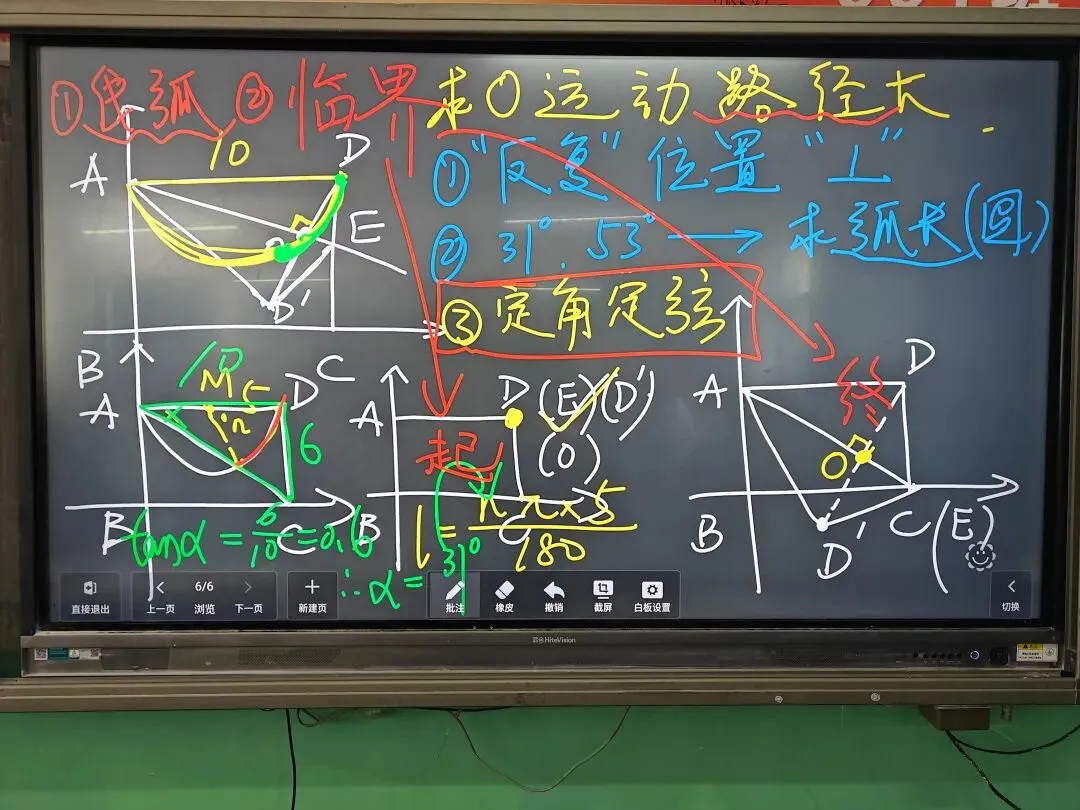 ①患弧 ②临界 求O运动路径长.
①"反复"位置"⊥"
②31°.53° → 求弧长(圆)
③定角定弦
10
A D
E
D'
B C
10
M
A D
n
6
B C
tanα = 6/10 = 0.6
∴α = 31°
A D(E)(D')
(O)
起
B C
l = nπ×5/180
A D
终
O
B D' C(E)
直接退出
上一页
6/6
浏览
下一页
新建页
批注
橡皮
撤销
截屏
白板设置
切换
HiteVision